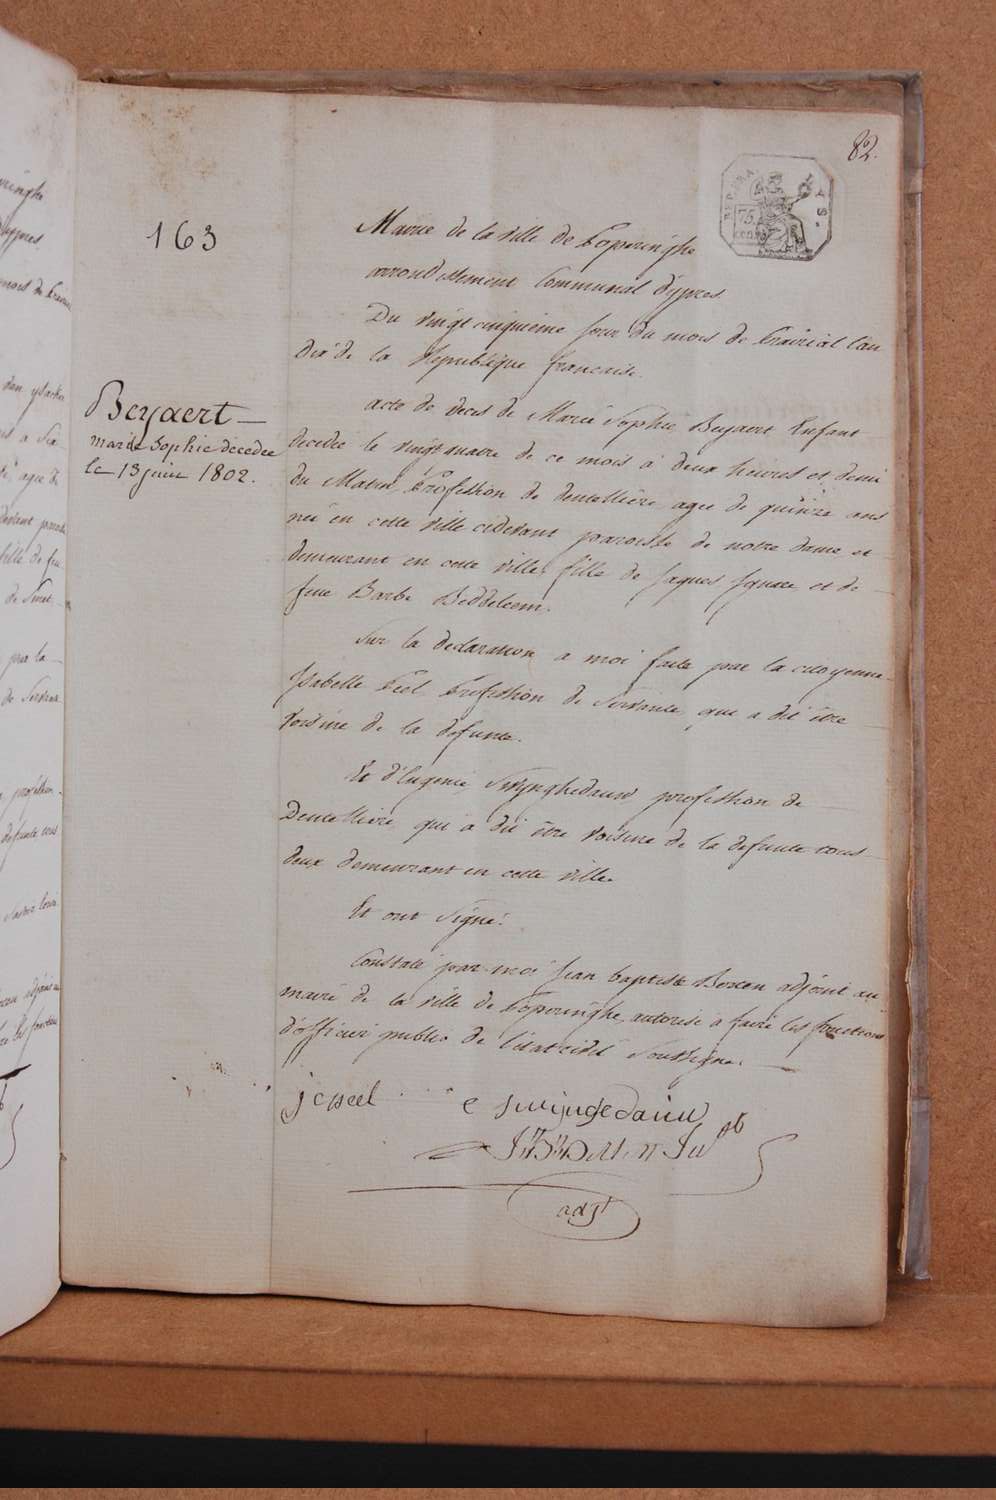 82.
REP. FRA
75
CENT
163
Mairie de la ville de Poperinghe
arrondissement Communal d'ypres
Du vingt cinquieme jour du mois de Prairial l'an
dix de la Republique francaise.
Beyaert
marie Sophie decedee
le 13 juin 1802.
acte de deces de Marie Sophie Beyaert Enfant
decedee le vingt matre de ce mois à deux heures et demi
du Matin Profession de dentelliere agee de quinze ans
née en cette ville cidevant paroisse de notre dame et
demeurant en cette ville, fille de Jaques Ignace et de
feue Barbe Beddeleem.
Sur la declaration a moi faite par la citoyenne
Isabelle Peel Profession de Servante, que a dit être
voisine de la defunte.
Et d'Eugenie Swynghedauw profession de
Dentelliere, qui a dit être voisine de la defunte tous
deux demeurant en cette ville.
Et ont Signé.
Constaté par moi Jean baptiste Berten adjoint au
maire de la ville de Poperinghe, autorisé à faire les fonctions
d'officier public de l'etat civil Soussigne.
e swijngedauw
adjt